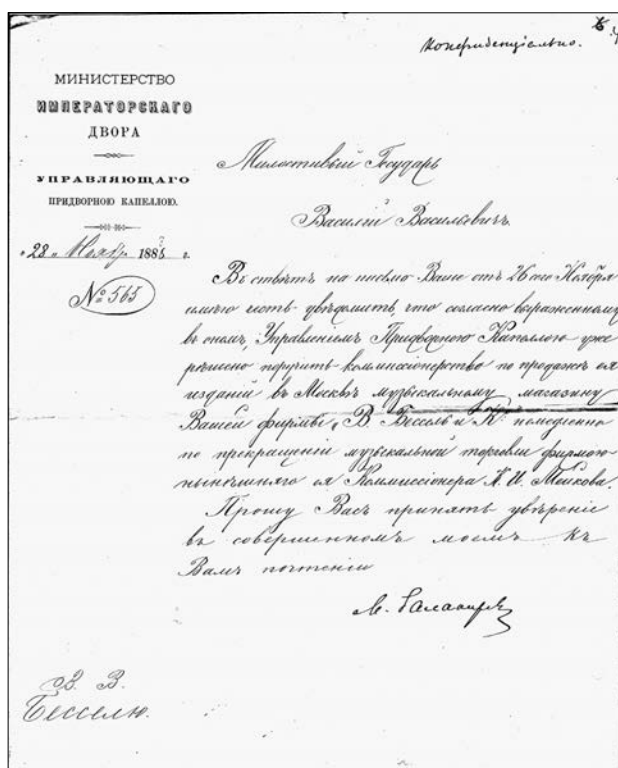 Конфиденціально.
МИНИСТЕРСТВО
ИМПЕРАТОРСКАГО
ДВОРА
УПРАВЛЯЮЩАГО
ПРИДВОРНОЮ КАПЕЛЛОЮ.
„28„ Ноября 188 г.
№ 565
Милостивый Государь
Василій Васильевичъ.
Въ отвѣтъ на письмо Ваше отъ 26 сего Ноября
имѣю честь увѣдомить, что согласно выраженному
въ ономъ, Управленіемъ Придворною Капеллою уже
рѣшено поручить коммиссіонерство по продажѣ ея
изданій въ Москвѣ музыкальному магазину
Вашей фирмы „В. Бессель и К° немедленно
по прекращеніи музыкальной торговли фирмою
нынѣшняго ея Коммиссіонера П. И. Мейкова.
Прошу Васъ принять увѣреніе
въ совершенномъ моемъ къ
Вамъ почтеніи
М. Балакирев
В. В.
Бесселю.